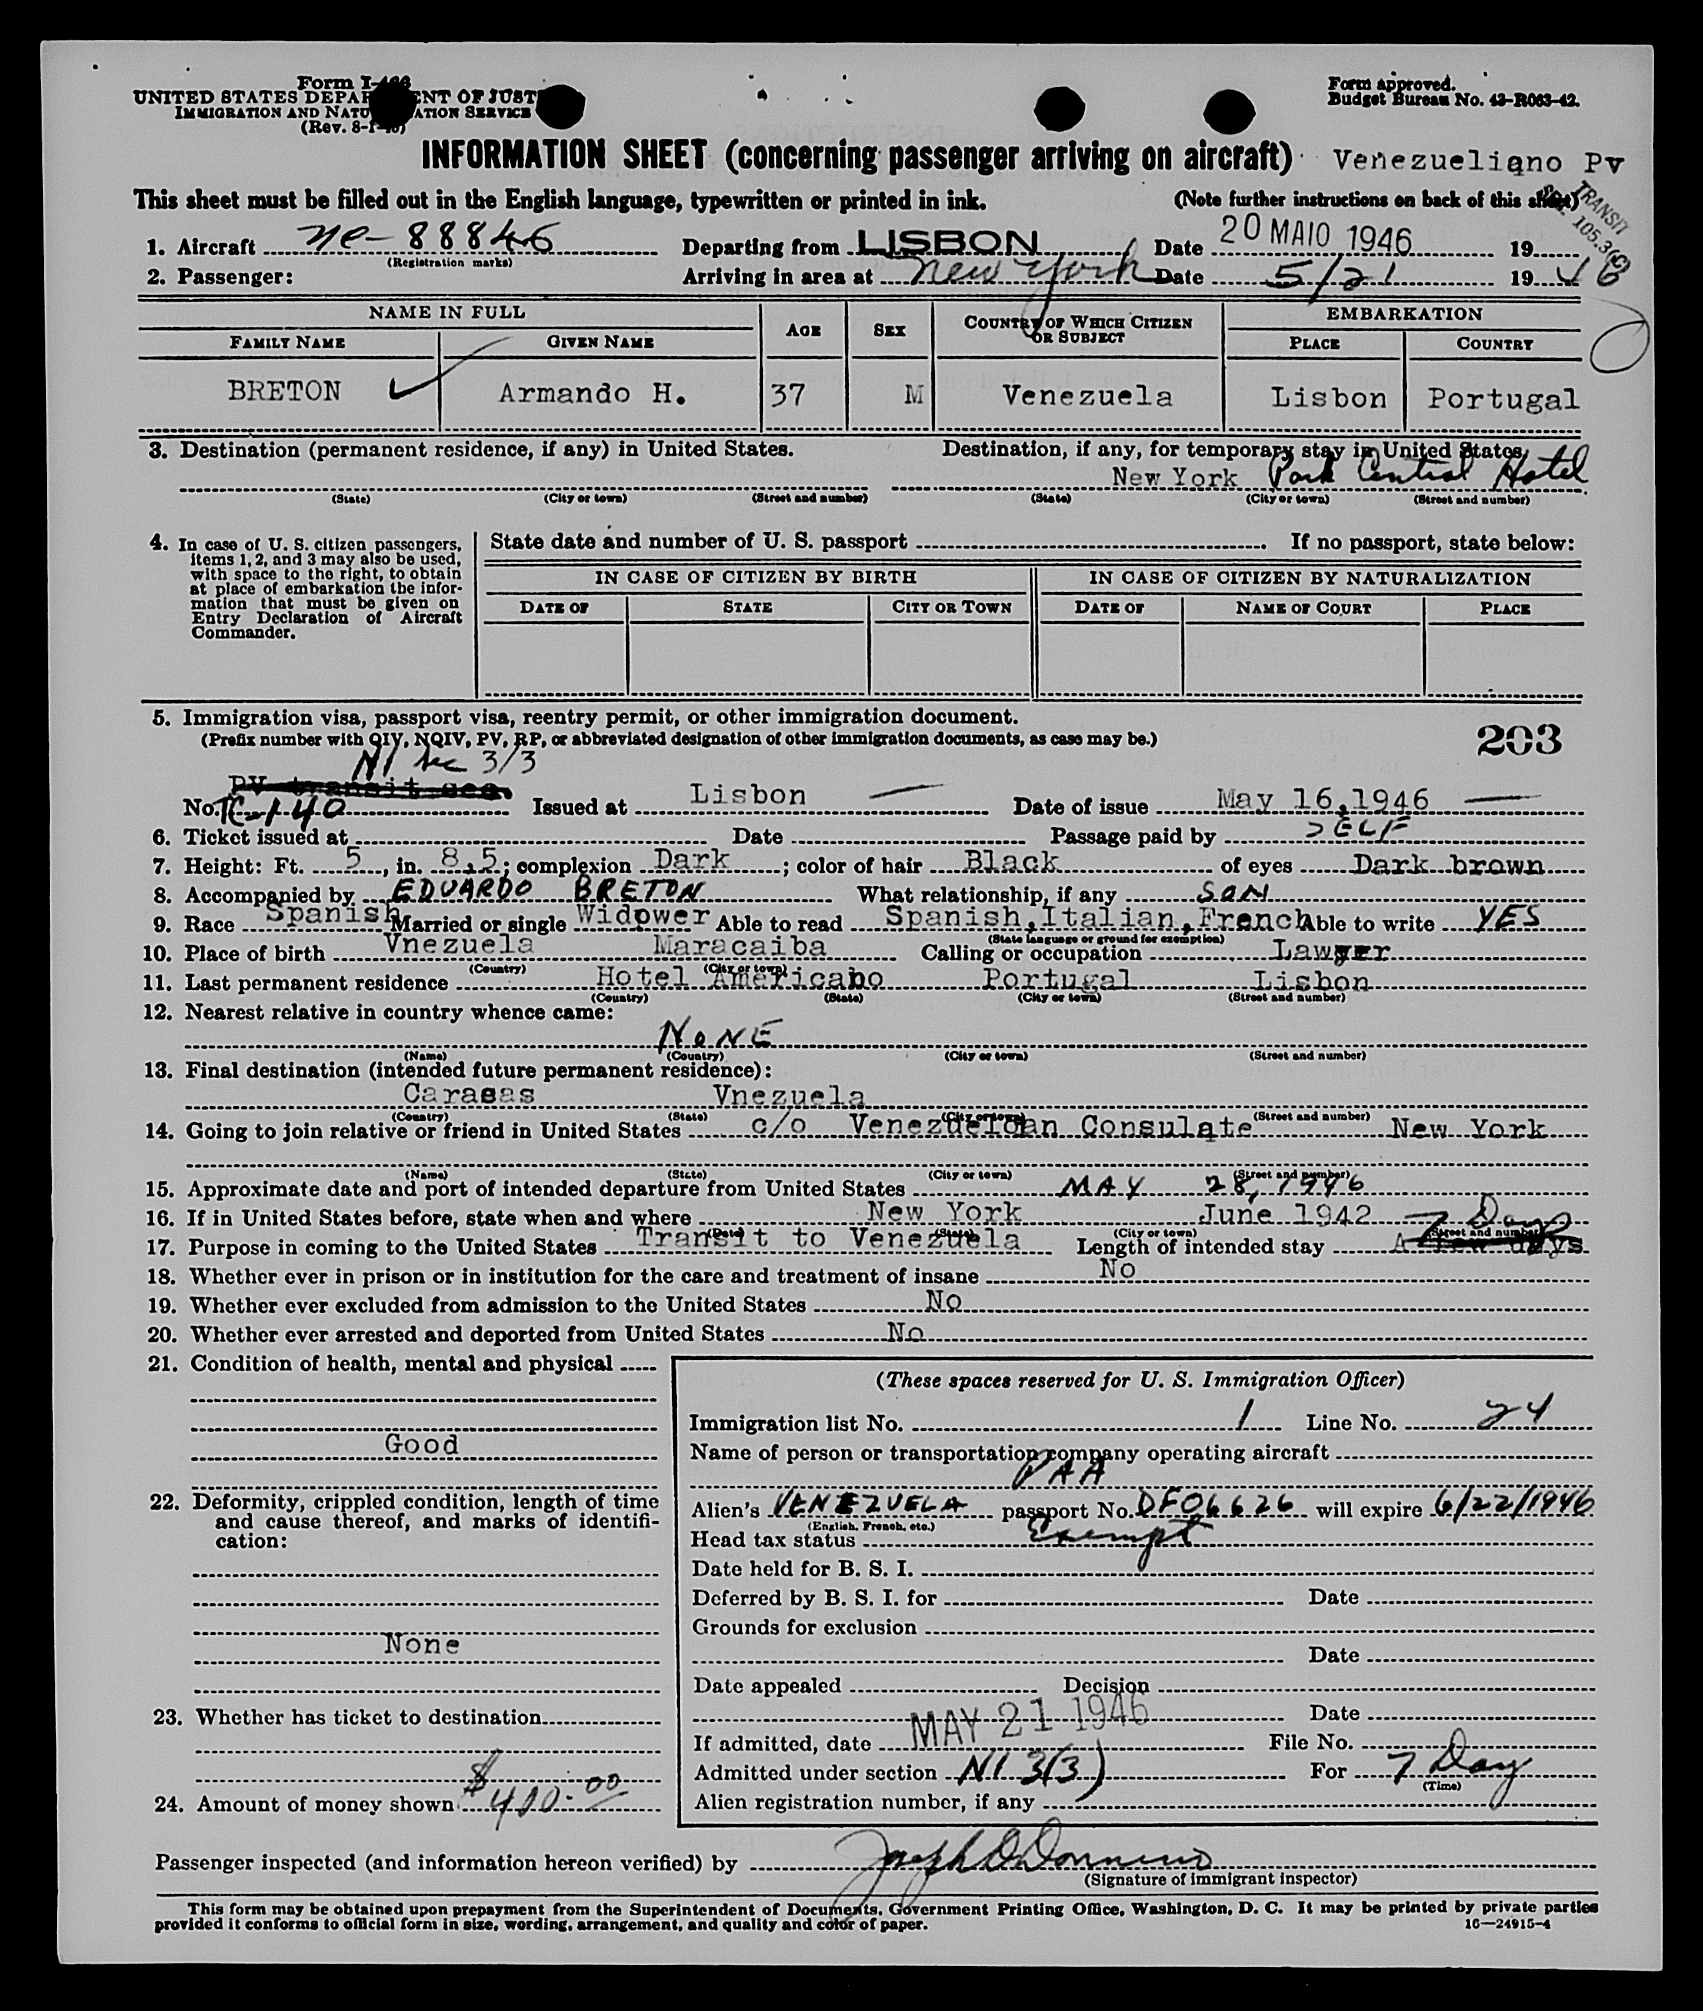 Form I-466
UNITED STATES DEPARTMENT OF JUSTICE
IMMIGRATION AND NATURALIZATION SERVICE
(Rev. 8-1-40)
Form approved.
Budget Bureau No. 43-R063-42.
INFORMATION SHEET (concerning passenger arriving on aircraft) Venezueliano Pv
This sheet must be filled out in the English language, typewritten or printed in ink. (Note further instructions on back of this sheet)
TRANSIT
105.3(6)
1. Aircraft nc-88846 Departing from LISBON Date 20 MAIO 1946 19
(Registration marks)
2. Passenger: Arriving in area at New York Date 5/21 1946
NAME IN FULL AGE SEX COUNTRY OF WHICH CITIZEN OR SUBJECT EMBARKATION
FAMILY NAME GIVEN NAME PLACE COUNTRY
BRETON Armando H. 37 M Venezuela Lisbon Portugal
3. Destination (permanent residence, if any) in United States. Destination, if any, for temporary stay in United States,
New York Park Central Hotel
(State) (City or town) (Street and number) (State) (City or town) (Street and number)
4. In case of U. S. citizen passengers, items 1, 2, and 3 may also be used, with space to the right, to obtain at place of embarkation the information that must be given on Entry Declaration of Aircraft Commander.
State date and number of U. S. passport If no passport, state below:
IN CASE OF CITIZEN BY BIRTH IN CASE OF CITIZEN BY NATURALIZATION
DATE OF STATE CITY OR TOWN DATE OF NAME OF COURT PLACE
5. Immigration visa, passport visa, reentry permit, or other immigration document.
(Prefix number with QIV, NQIV, PV, RP, or abbreviated designation of other immigration documents, as case may be.)
203
NI sec 3/3
PV transit sea.
No. TC-140 Issued at Lisbon Date of issue May 16,1946
6. Ticket issued at Date Passage paid by SELF
7. Height: Ft. 5, in. 8,5; complexion Dark; color of hair Black of eyes Dark brown
8. Accompanied by EDUARDO BRETON What relationship, if any SON
9. Race Spanish Married or single Widower Able to read Spanish,Italian,French Able to write YES
(State language or ground for exemption)
10. Place of birth Vnezuela Maracaiba Calling or occupation Lawyer
(Country) (City or town)
11. Last permanent residence Hotel Americano Portugal Lisbon
(Country) (State) (City or town) (Street and number)
12. Nearest relative in country whence came:
NONE
(Name) (Country) (City or town) (Street and number)
13. Final destination (intended future permanent residence):
Carasas Vnezuela
(Country) (State) (City or town) (Street and number)
14. Going to join relative or friend in United States c/o Venezueloan Consulate New York
(Name) (State) (City or town) (Street and number)
15. Approximate date and port of intended departure from United States MAY 28, 1946
16. If in United States before, state when and where New York June 1942 7 Days
(Date) (State) (City or town) (Street and number)
17. Purpose in coming to the United States Transit to Venezuela Length of intended stay A few days
18. Whether ever in prison or in institution for the care and treatment of insane No
19. Whether ever excluded from admission to the United States No
20. Whether ever arrested and deported from United States No
21. Condition of health, mental and physical
Good
22. Deformity, crippled condition, length of time and cause thereof, and marks of identification:
None
23. Whether has ticket to destination
24. Amount of money shown $400.00
(These spaces reserved for U. S. Immigration Officer)
Immigration list No. 1 Line No. 24
Name of person or transportation company operating aircraft
PAA
Alien's VENEZUELA passport No. DF06626 will expire 6/22/1946
(English, French, etc.)
Head tax status Exempt
Date held for B. S. I.
Deferred by B. S. I. for Date
Grounds for exclusion
Date
Date appealed Decision
Date
If admitted, date MAY 21 1946 File No.
Admitted under section NI 3(3) For 7 Day
(Time)
Alien registration number, if any
Passenger inspected (and information hereon verified) by Joseph
(Signature of immigrant inspector)
This form may be obtained upon prepayment from the Superintendent of Documents, Government Printing Office, Washington, D. C. It may be printed by private parties
provided it conforms to official form in size, wording, arrangement, and quality and color of paper. 16—24915-4